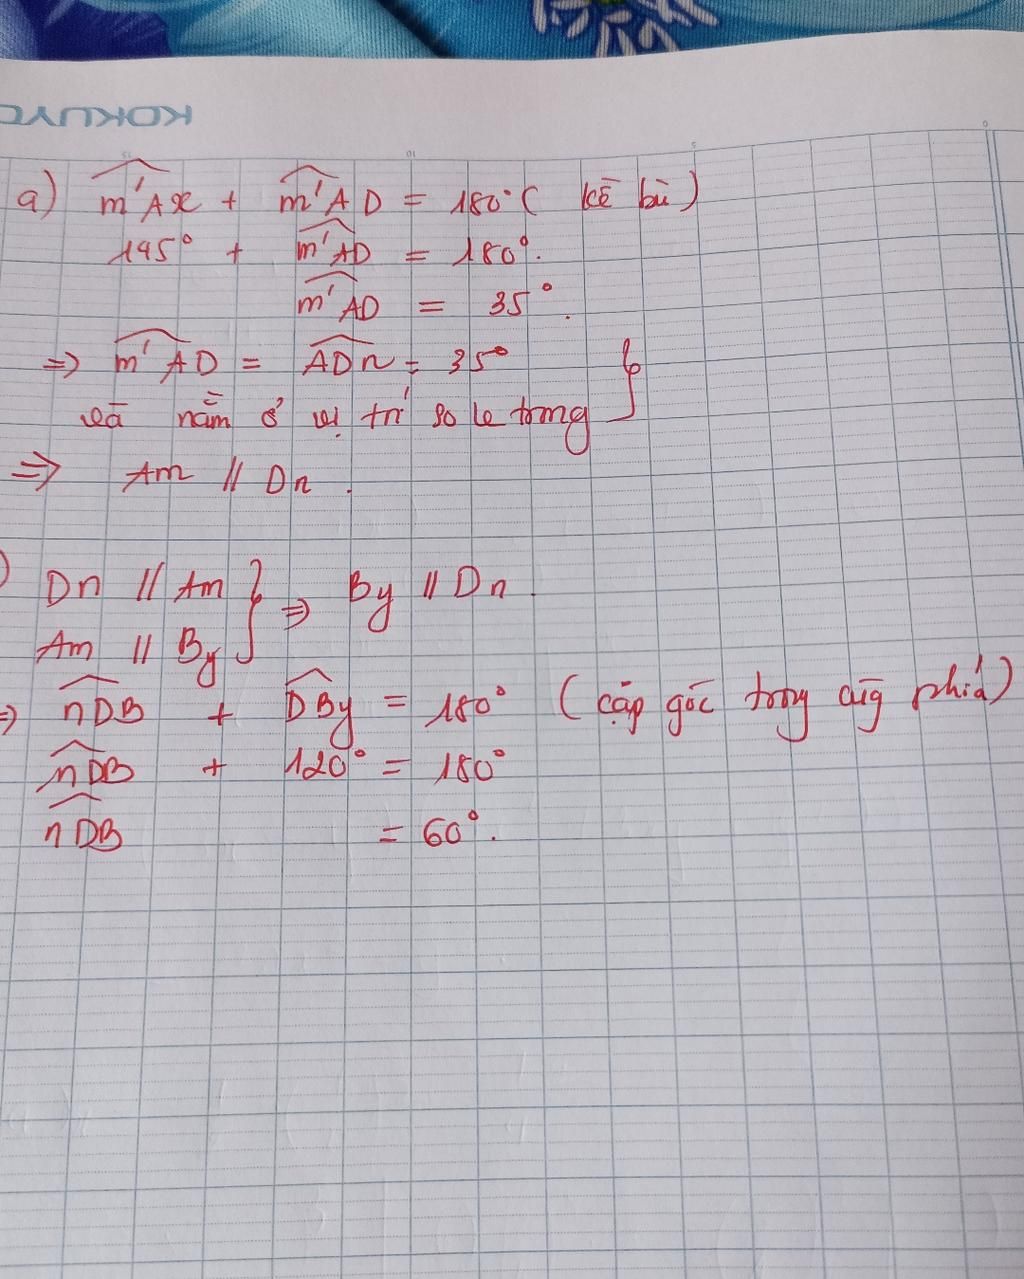 KOKUYO
a) m'Ax + m'AD = 180° ( kề bù )
145° + m'AD = 180°.
m'AD = 35°.
=> m'AD = ADn = 35° }
và nằm ở vị trí so le trong
=> Am // Dn .
) Dn // Am } => By // Dn .
Am // By
=> nDB + DBy = 180° ( cặp góc trong cùg phía )
nDB + 120° = 180°
nDB = 60°.